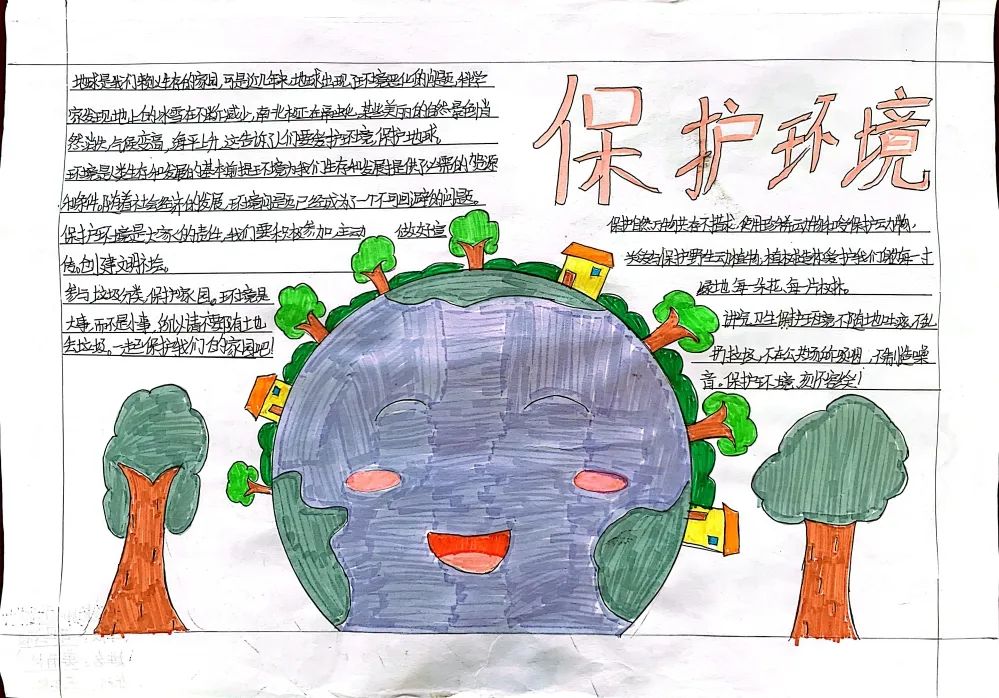 保护环境
地球是我们赖以生存的家园,可是近几年来,地球出现了环境恶化的问题,科学
家发现地上的冰雪在不断减少,南北极正在融化,某些美丽的自然景色消
然消失,气候变高,海平上升,这告诉人们要爱护环境,保护地球。
环境是人类生存和发展的基本前提环境为我们生存和发展提供了必需的资源
和条件。随着社会经济的发展,环境问题已经成为了一个不可回避的问题。
保护环境是大家的责任,我们要积极参加,主动 做好宣
传。创建文明社会。
参与垃圾分类,保护家园。环境是
大事,而不是小事,所以请不要随地
丢垃圾。一起保护我们的家园吧!
保护自然万物,使用珍稀动物和令保护动物,
关爱与保护野生动植物,植树造林爱护我们的每一寸
绿地,每一朵花,每一片树林。
讲究卫生保护环境不随地吐痰,不乱
扔垃圾,不在公共场所吸烟,不制造噪
音。保护环境,刻不容缓!